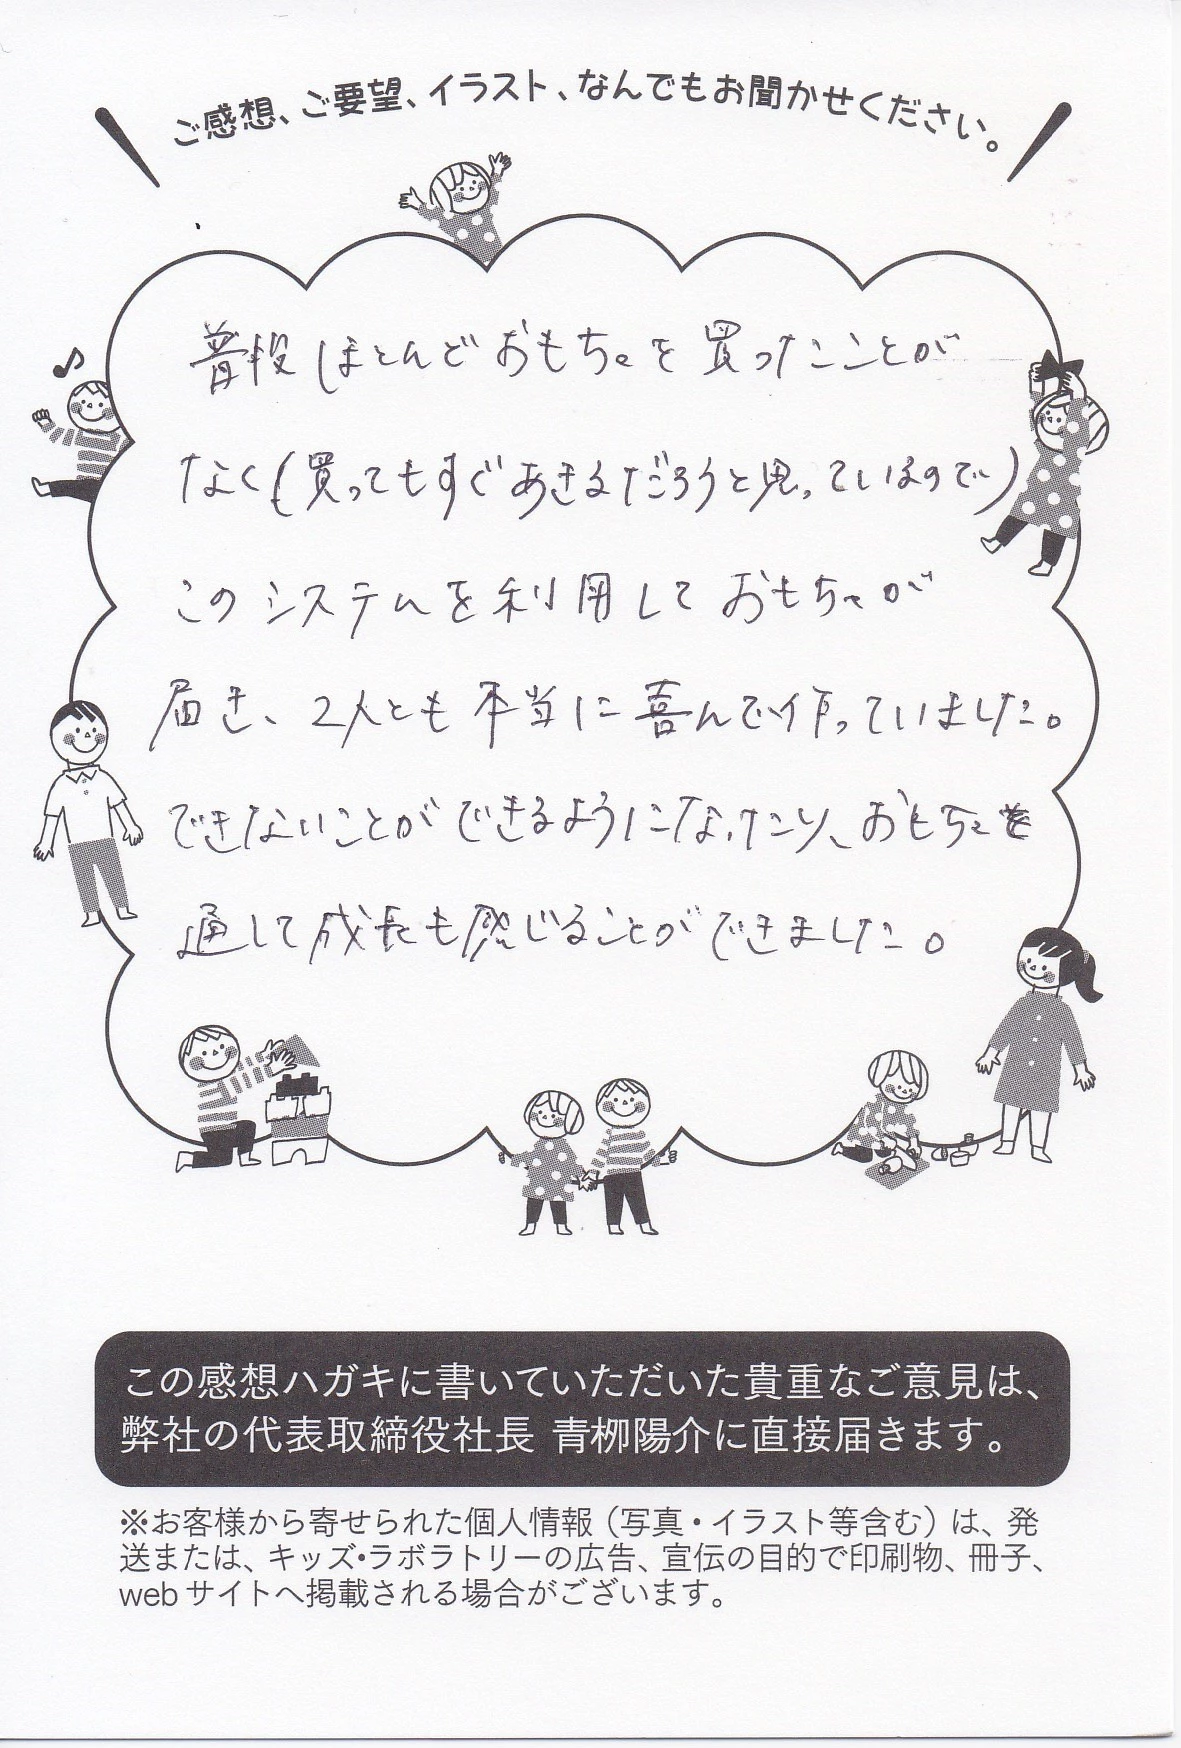 ご感想、ご要望、イラスト、なんでもお聞かせください。
普段ほとんどおもちゃを買ったことが
なく(買ってもすぐあきるだろうと思っているので)
このシステムを利用しておもちゃが
届き、2人とも本当に喜んで作っていました。
できないことができるようになったり、おもちゃを
通して成長も感じることができました。
この感想ハガキに書いていただいた貴重なご意見は、
弊社の代表取締役社長 青栁陽介に直接届きます。
※お客様から寄せられた個人情報（写真・イラスト等含む）は、発
送または、キッズ・ラボラトリーの広告、宣伝の目的で印刷物、冊子、
webサイトへ掲載される場合がございます。